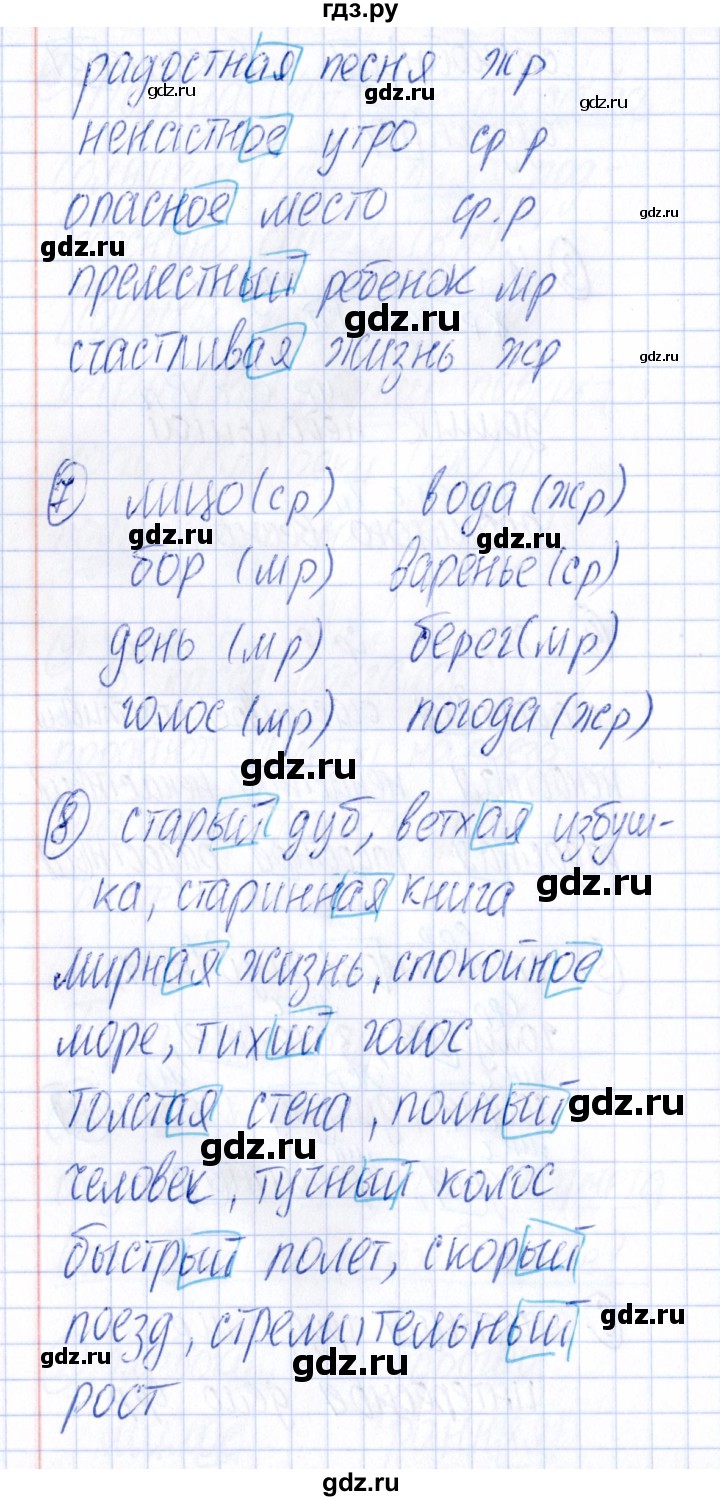 гдз.ру
радостная песня жр
gdz.ru gdz.ru gdz.ru
ненастное утро ср р
опасное место ср.р
gdz.ru gdz.ru
прелестный ребенок мр
gdz.ru
счастливая жизнь жр
gdz.ru
7 лицо(ср) вода (жр)
gdz.ru gdz.ru
бор (мр) варенье(ср)
день (мр) берег(мр)
голос(мр) погода(жр)
gdz.ru
8 старый дуб, ветхая избуш-
gdz.ru
ка, старинная книга
мирная жизнь, спокойное
море, тихий голос
толстая стена, полный
gdz.ru gdz.ru
человек, тучный колос
быстрый полет, скорый
gdz.ru
поезд, стремительный
gdz.ru gdz.ru
рост
gdz.ru